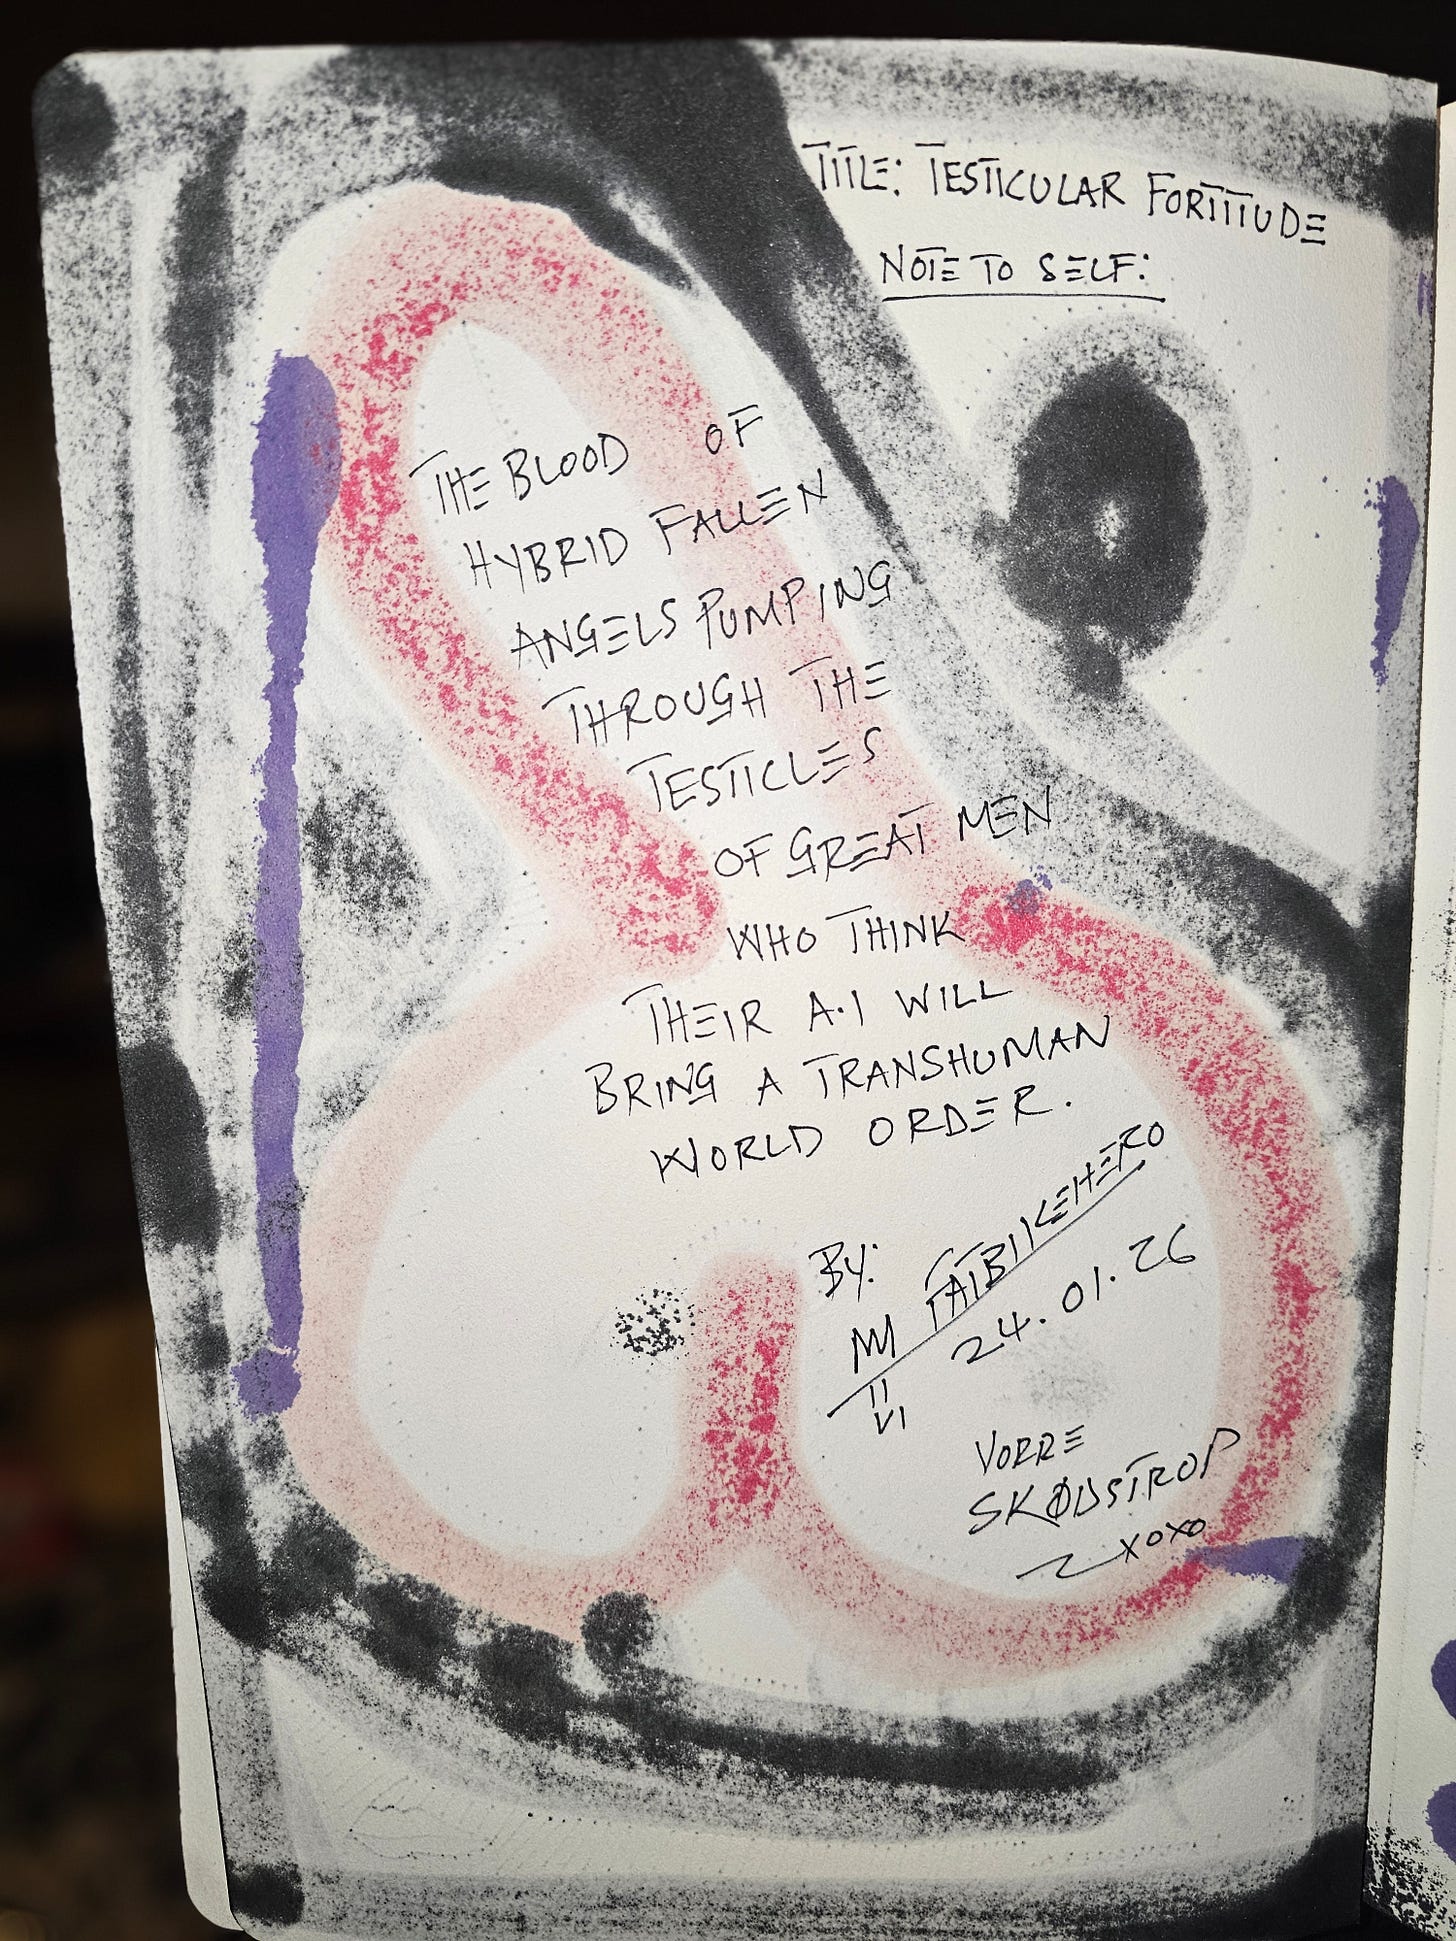 TITLE: TESTICULAR FORTITUDE
NOTE TO SELF:
THE BLOOD OF
HYBRID FALLEN
ANGELS PUMPING
THROUGH THE
TESTICLES
OF GREAT MEN
WHO THINK
THEIR A.I WILL
BRING A TRANSHUMAN
WORLD ORDER.
BY:
24.01.26
VORRE
SKØDSTROP
XOXO